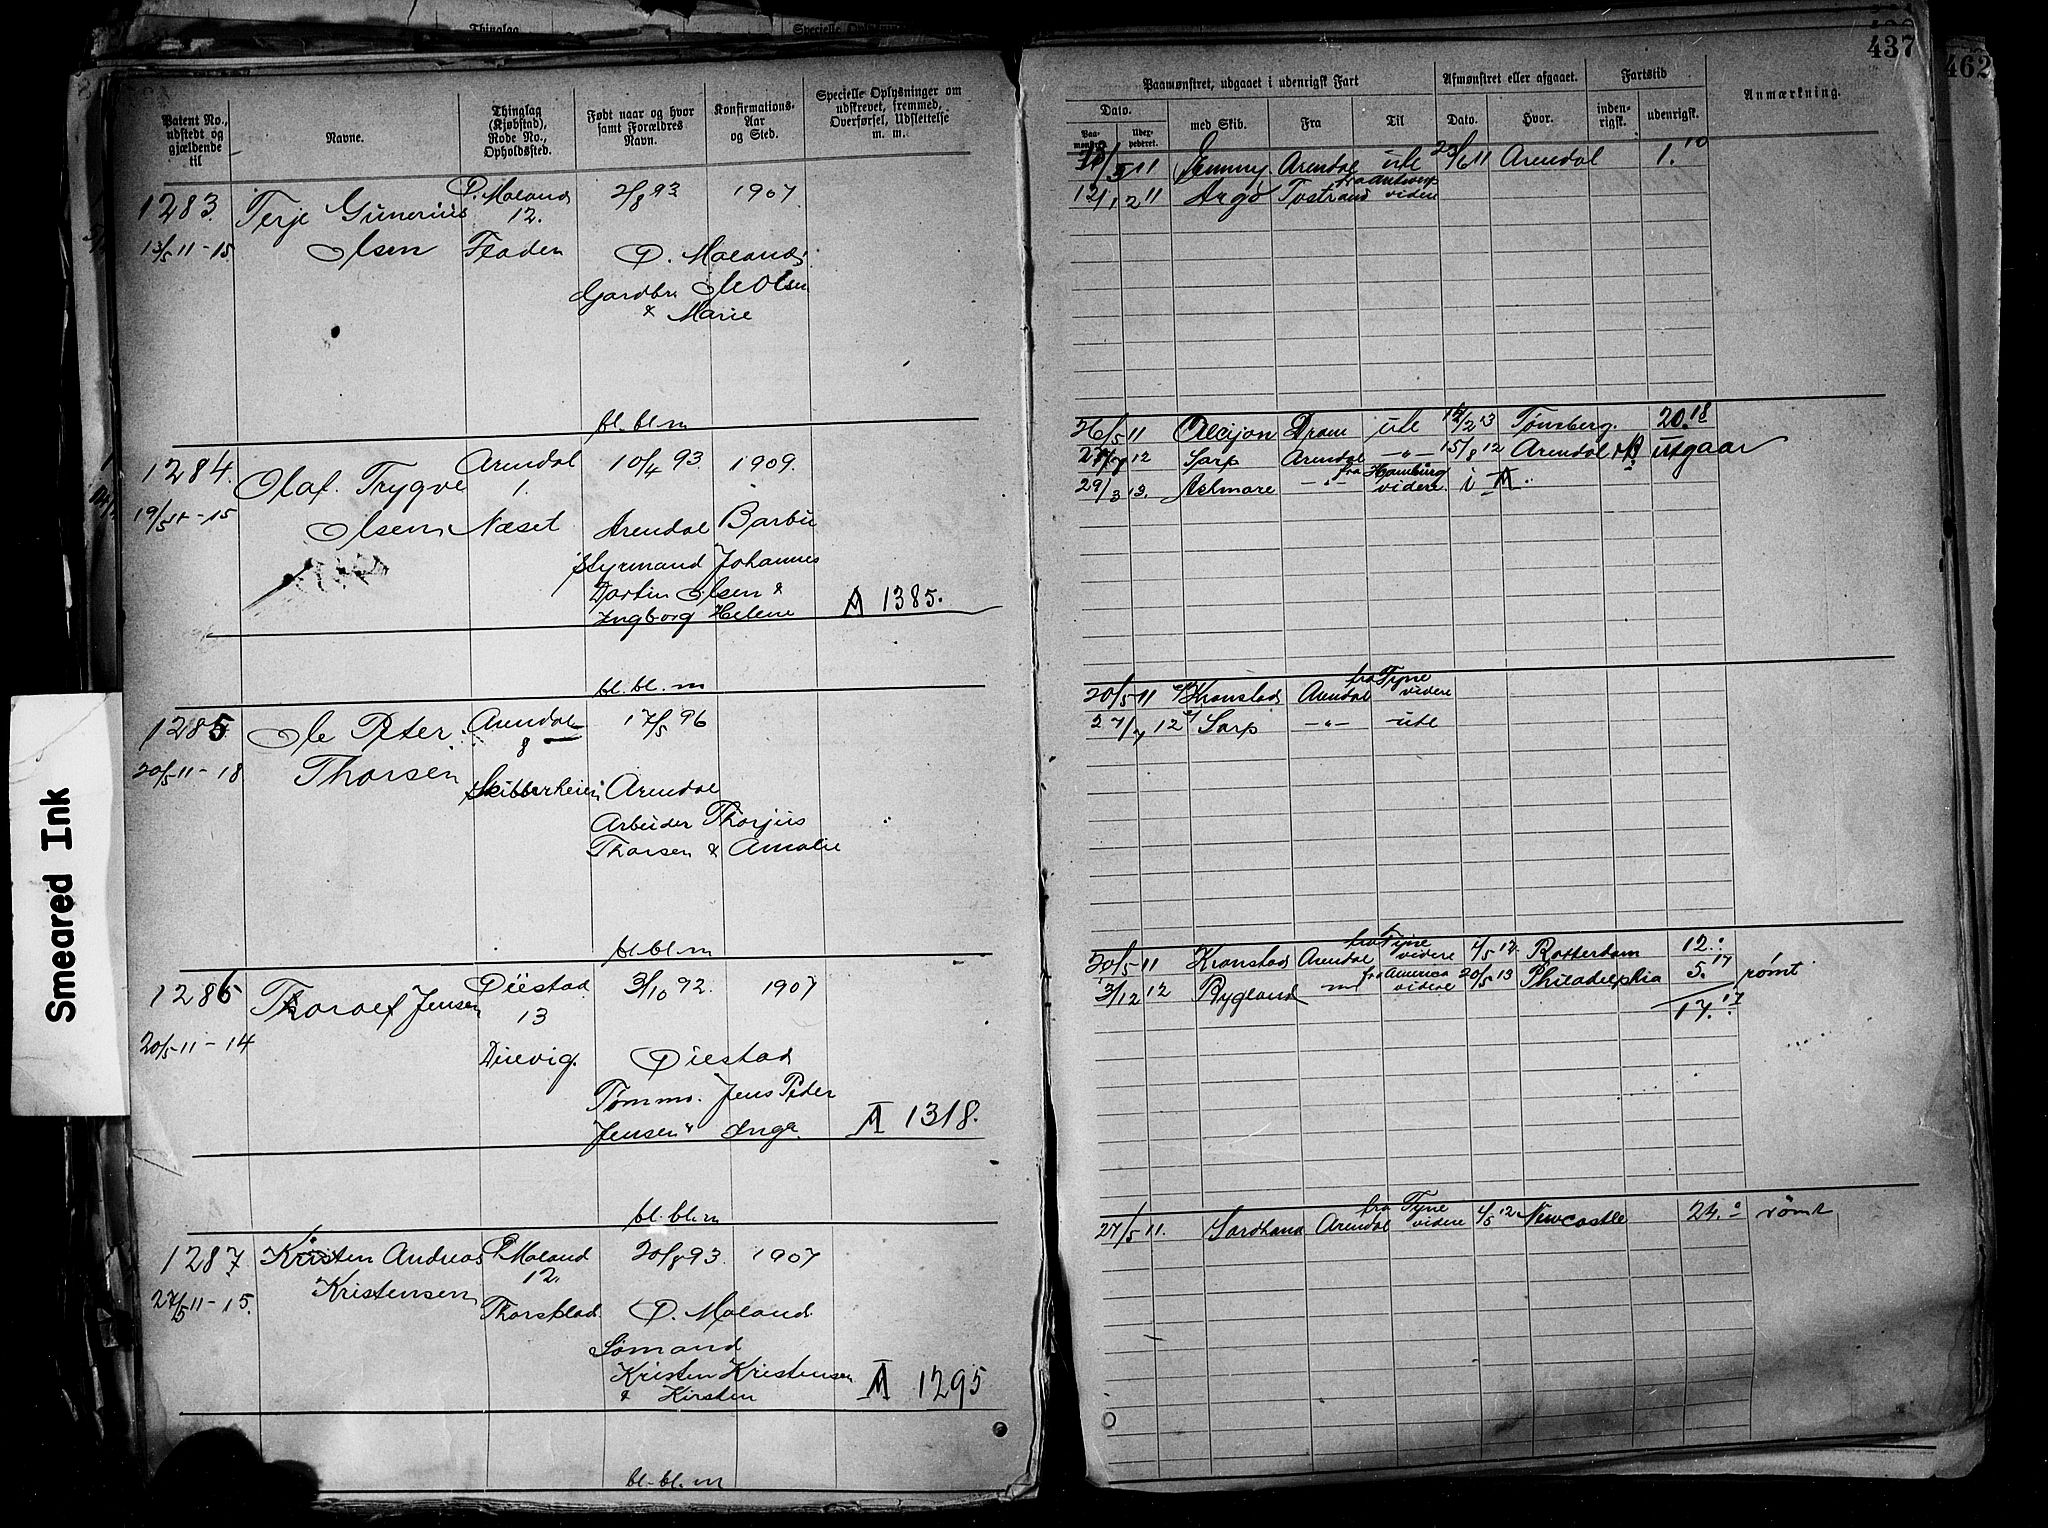 437
462
Smeared Ink
Patent No., udstedt og gjældende til
Navne.
Thinglag (Kjøbstad), Rode No., Opholdssted.
Født naar og hvor samt Forældres Navn.
Konfirmations- Aar og Sted.
Specielle Oplysninger om udskrevet, fremmed, Overførsel, Udslettelse m. m.
Paamønstret, udgaaet i udenrigsk Fart
Afmønstret eller afgaaet.
Fartstid
Anmærkning.
Dato.
med Skib.
Fra
Til
Dato.
Hvor.
inden- rigsk.
udenrigsk.
1283. Terje Gunerius P. Moland 2/8 93 1907
12.
13/5 11-15 Olsen Fladen P. Moland
Gardbr. Ole Olsen
& Marie
bl. bl. m
Jenny Arendal ute 11 Arendal 1.10
fra Antwerp
12/12 11 Argo Tvestrand videre
1284. Olaf Trygve Arendal 10/4 93 1909.
1.
19/5 11-15 Olsen Næset Arendal Barbu
Styrmand Johannes
Martin Olsen &
Ingborg Helene A 1385.
bl. bl. m
26/5 11 Alcijon Dram ute 13 Tønsberg. 20.18
12 Sarp Arendal -"- 15/8 12 Arendal utgaar
fra Hamburg
29/3 13. Aslmare -"- videre i A.
1285 Ole Peter Arendal 17/5 96
8
20/5-11-18 Thorsen Skibberheien Arendal
Arbeider Thorjus
Thorsen & Amalie
bl. bl. m
fra Tyne
20/5 11 Kronstad Arendal videre
27/7 12 Sarp -"- ute
1286 Thoralf Jensen Øiestad 3/10 92. 1907
13
20/5-11-14 Dievig. Øiestad
Tømmm. Jens Peter
Jensen & Inga. A 1318.
bl. bl. m
fra Tyne
20/5 11 Kronstad Arendal videre 4/5 12. Rotterdam 12.
fra America
3/12 12 Rygland videre 20/5 13 Philadelphia 5.17 rømt
17.17
1287. Kristen Andreas P. Moland 20/8 93 1907
12.
27/5 11-15. Kristensen Thorsklad. P. Moland
Sømand
Kristen Kristensen
& Kirsten A 1295
bl. bl. m
fra Tyne
27/5 11. Sardhana Arendal videre 4/5 12 Newcastle 24. rømt